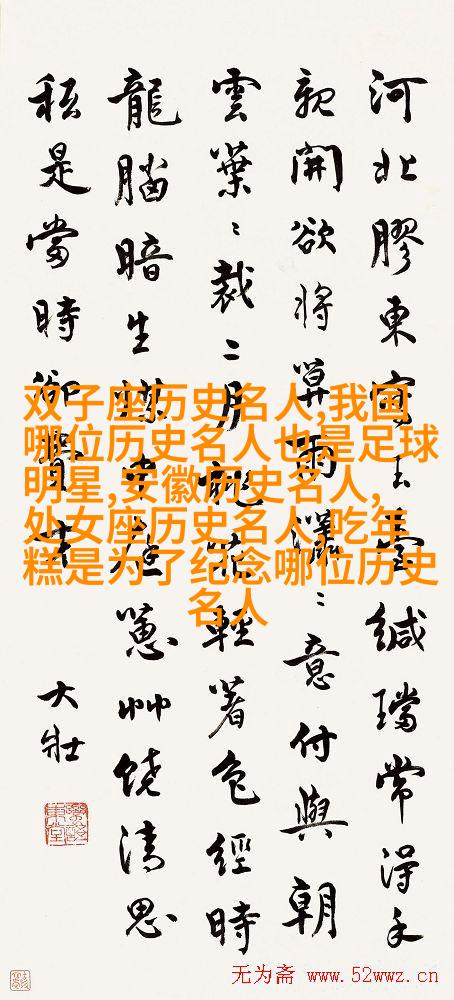 河北膠東緘璫常得手
親開欲將意付與朝
雲葉〻裁〻月花輕著色經時
龍腦暗生蔥艸饒清思
秖是當時卻
大壯
双子座历史名人,我国
哪位历史名人也是足球
明星,安徽历史名人,
处女座历史名人,吃年
糕是为了纪念哪位历史
名人
无为斋 www.52wwz.cn